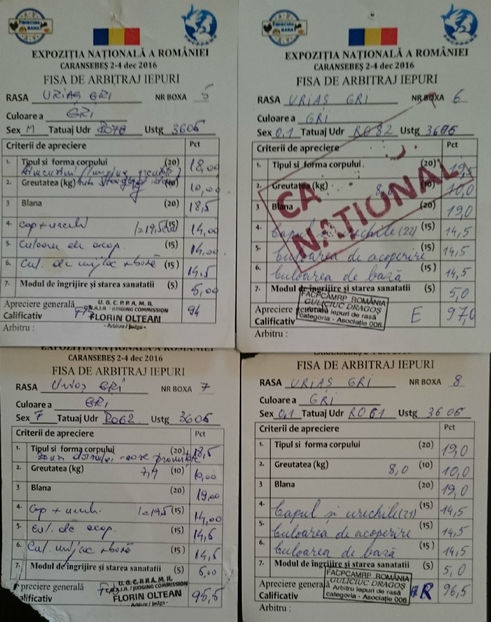 EXPOZIȚIA NAȚIONALĂ A ROMÂNIEI
CARANSEBEȘ 2-4 dec 2016
FISA DE ARBITRAJ IEPURI
RASA URIAȘ GRI NR BOXA 5
Culoare a GRI
Sex M Tatuaj Udr Ustg 3606
Criterii de apreciere Pct
1. Tipul si forma corpului (20) 18,00
2. Greutatea (kg) (10) 10,00
3 Blana (20) 18,5
4. Cap + urechi (15) 14,00
5. Culoarea de acop. (15) 14,00
6. Cul. de (15) 14,5
7. Modul de îngrijire și starea sanatatii (5) 5,00
Apreciere generală 94
Calificativ
U.G.C.P.P.A.M.R.
FLORIN OLTEAN
- Arbitru / Judge -
Arbitru :
EXPOZIȚIA NAȚIONALĂ A ROMÂNIEI
CARANSEBEȘ 2-4 dec 2016
FISA DE ARBITRAJ IEPURI
RASA URIAS GRI NR BOXA 6
Culoare a GRI
Sex 0,1 Tatuaj Udr RO82 Ustg 3606
Criterii de apreciere Pct
1. Tipul si forma corpului (20) 19,5
2. Greutatea (kg) (10) 10,0
3 Blana (20) 19,0
4. Capul si urechile (22) (15) 14,5
5. Culoarea de acoperire (15) 14,5
6. Culoarea de bază (15) 14,5
7. Modul de îngrijire si starea sanatatii (5) 5,0
Apreciere generală E 97,0
Calificativ
CA NATIONAL
FACPCAMRP ROMÂNIA
GULICIUC DRAGOȘ
Arbitru iepuri de rasă
categoria - Asociație 006
Arbitru :
CARANSEBEȘ 2-4 dec 2016
FISA DE ARBITRAJ IEPURI
RASA GRI NR BOXA 7
Culoare a GRI
Sex F Tatuaj Udr RO62 Ustg 3606
Criterii de apreciere Pct
1. Tipul si forma corpului (20) 18,5
2. Greutatea (kg) 7,4 (10) 10,00
3 Blana (20) 19,00
4. Cap + urechi (15) 14,00
5. Cul. de acop. (15) 14,5
6. Cul. (15) 14,5
7. Modul de îngrijire si starea sanatatii (5) 5,00
Apreciere generală 95,5
Calificativ
U.G.C.P.P.A.M.R.
FLORIN OLTEAN
- Arbitru / Judge -
Arbitru :
FISA DE ARBITRAJ IEPURI
RASA URIAS GRI NR BOXA 8
Culoare a GRI
Sex 0,1 Tatuaj Udr RO61 Ustg 3606
Criterii de apreciere Pct
1. Tipul si forma corpului (20) 19,0
2. Greutatea (kg) 8,0 (10) 10,0
3 Blana (20) 19,0
4. Capul si urechile (21) (15) 14,5
5. Culoarea de acoperire (15) 14,5
6. Culoarea de bază (15) 14,5
7. Modul de îngrijire si starea sanatatii (5) 5,0
Apreciere generală R 96,5
Calificativ
FACPCAMRP ROMÂNIA
GULICIUC DRAGOȘ
Arbitru iepuri de rasă
categoria - Asociație 006
Arbitru :